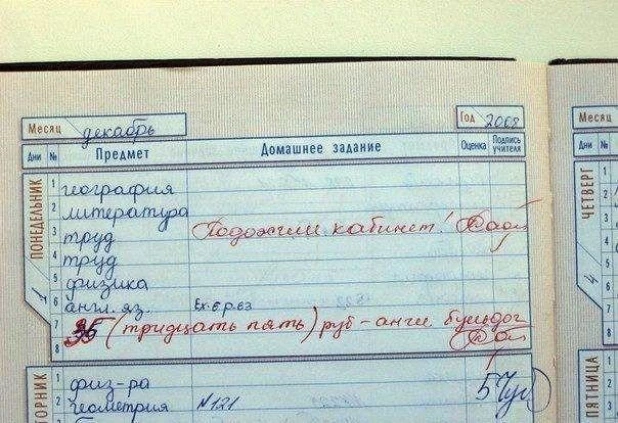 Месяц декабрь Год 2008
Дни № Предмет Домашнее задание Оценка Подпись учителя
ПОНЕДЕЛЬНИК 1
1 география
2 литература
3 труд Подожгли кабинет!
4 труд
5 физика
6 англ. яз. Ex. 6 p. 63
7 35 (тридцать пять) руб - англ. бульдог
8
ТОРНИК
1 физ-ра 5
2 геометрия №121
Месяц
Дни №
ЧЕТВЕРГ 4
1
2
3
4
5
6
7
8
ПЯТНИЦА
1
2
3